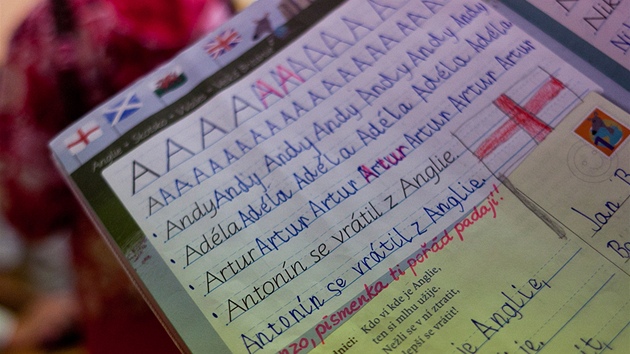 Anglie • Skotsko • Wales • Velká Británie
A A A A A A A A A A A A
A A A A A A A A A A A A A A A A
• Andy Andy Andy Andy Andy Andy Andy
• Adéla Adéla Adéla Adéla Adéla Adéla
• Artur Artur Artur Artur Artur Artur Artur
• Antonín se vrátil z Anglie.
Antonín se vrátil z Anglie.
písmenka ti pořád padají!
Kdo ví kde je Anglie,
ten si mlhu užije.
Nežli se v ní ztratit,
lepší se vrátit!
Jan B
Anglie,
Anglie,